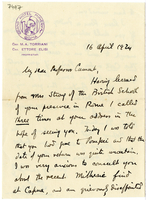 7457
Tel. H.A. TORRIANI
Tel. ETTORE ELISI
16 April 1924
My dear Professor Cumont,
Having learned
from Mrs Strong of the British School
of your presence in Rome I called
three times at your address in the
hope of seeing you. Today I was told
that you had gone to Pompei and that the
date of your return was quite uncertain.
I am very anxious to consult you
about the recent Mithraic find
at Capua, and am grievously disappointed